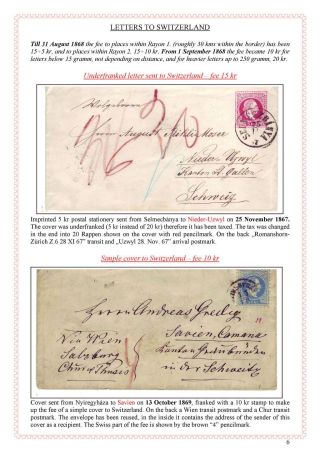 LETTERS TO SWITZERLAND
Till 31 August 1868 the fee to places within Rayon 1. (roughly 30 kms within the border) has been
15+5 kr. and to places within Rayon 2. 15+10 kr. From 1 September 1868 the fee became 10 kr for
letters below 15 gramm, not depending on distance, and for heavier letters up to 250 gramm, 20 kr.
Underfranked letter sent to Switzerland – fee 15 kr
Wolgeboren
Herrn August Mühle Moser
Nieder Uzwyl
Kanton St. Gallen
Schweiz
Imprinted 5 kr postal stationery sent from Selmecbánya to Nieder-Uzwyl on 25 November 1867.
The cover was underfranked (5 kr instead of 20 kr) therefore it has been taxed. The tax was changed
in the end into 20 Rappen shown on the cover with red pencilmark. On the back „Romanshorn-
Zürich Z 6 28 XI 67” transit and „Uzwyl 28. Nov. 67” arrival postmark.
Simple cover to Switzerland – fee 10 kr
Herrn Andreas Gredig
Savien, Camana
Via Wien
Kanton Graubünden
Salzburg
in der Schweitz
Chur & Thusis
Cover sent from Nyíregyháza to Savien on 13 October 1869, franked with a 10 kr stamp to make
up the fee of a simple cover to Switzerland. On the back a Wien transit postmark and a Chur transit
postmark. The envelope has been reused, in the inside it contains the address of the sender of this
cover as a recipient. The Swiss part of the fee is shown by the brown “4” pencilmark.
6